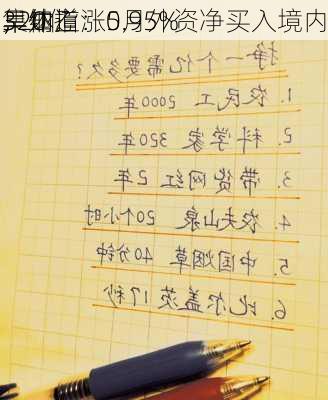 外资净买入境内
挣一个亿需要多久?
1. 农民工 2000年
2. 科学家 320年
3. 带货网红 2年
4. 农夫山泉 20个小时
5. 中国烟草 40分钟
6. 比尔盖茨 17秒